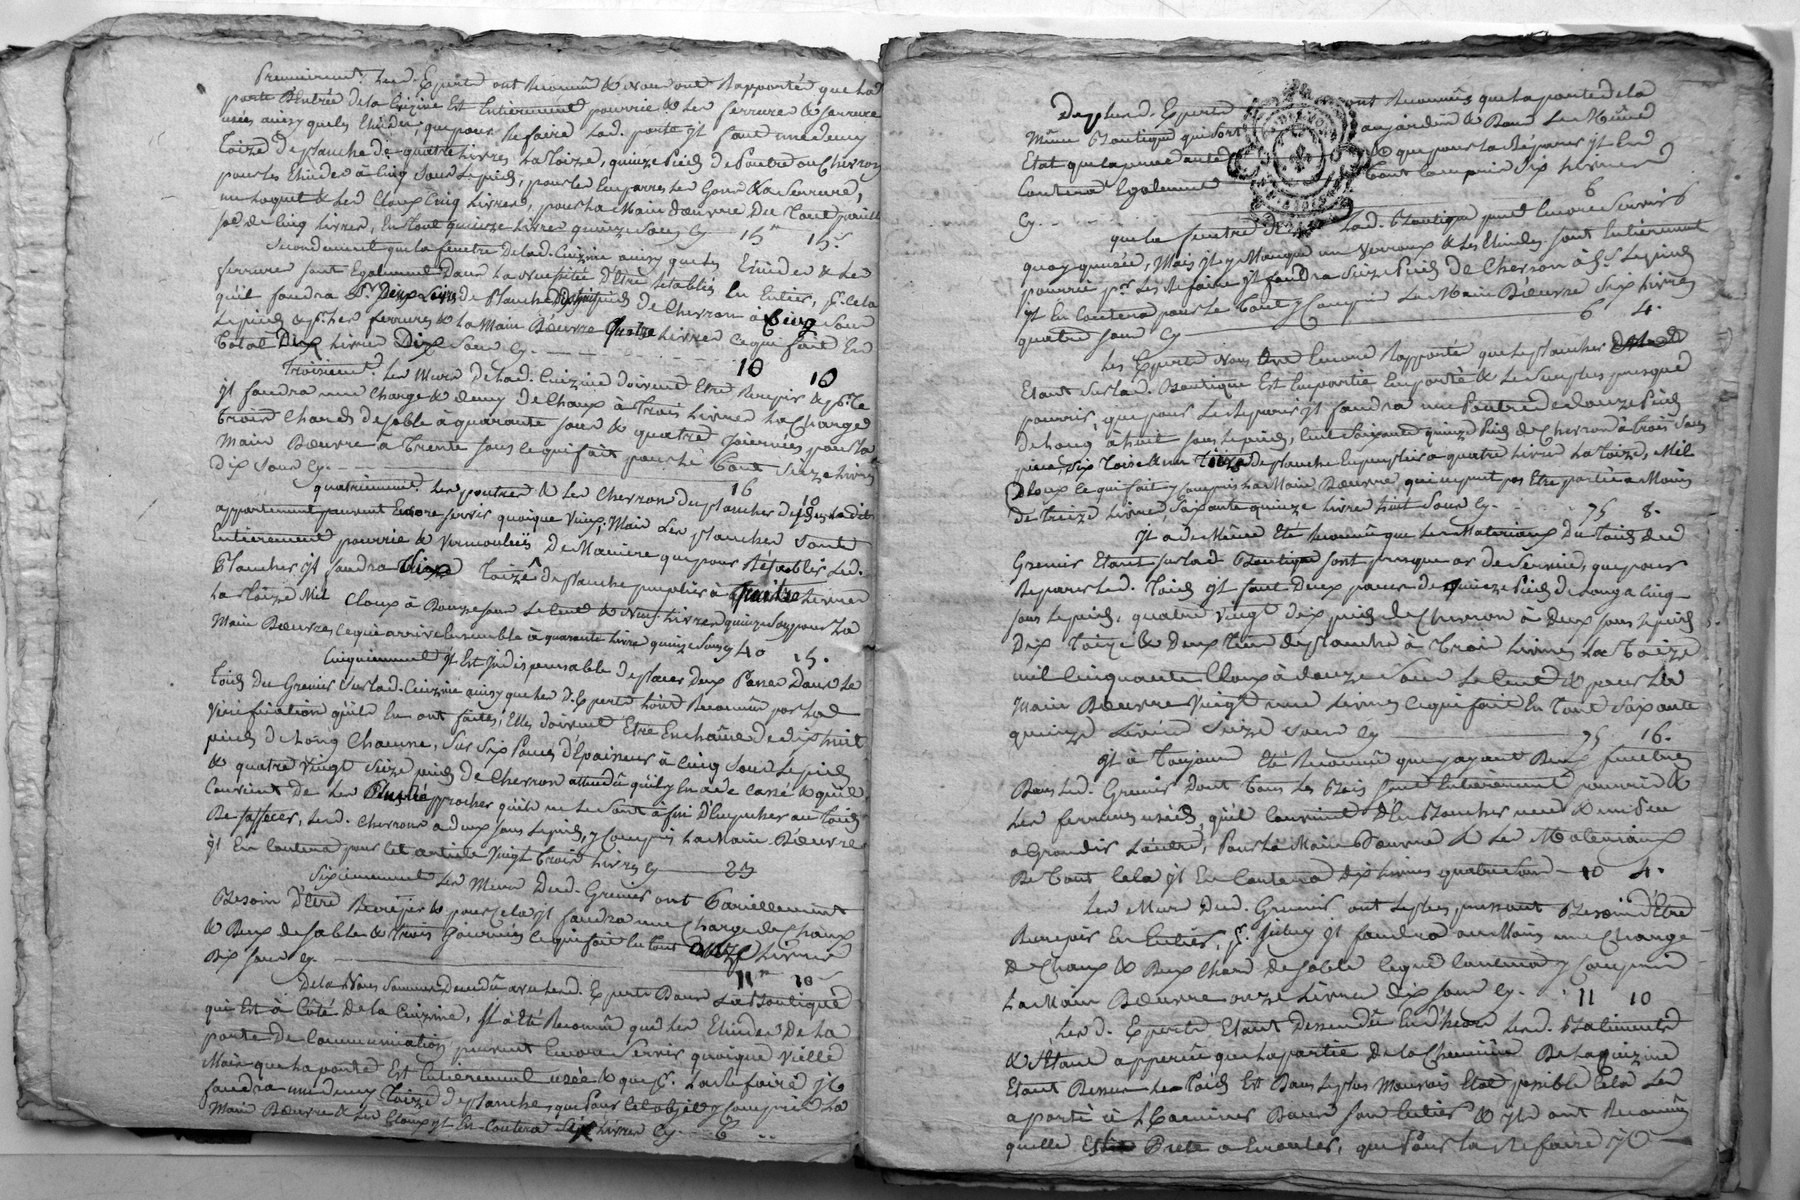 Premierement Lesd. Experts ont Reconnû & Nous ont Rapporté que La
porte D'Entrée de la Cuizine Est Entierement pourrie & Les ferrure & serrure
usées ainsy que les Etindes, que pour Refaire Lad. porte yl faut une demy
Toize De planche de quatre Livres La Toize, quinze Pieds de Poutre ou Chevron
pour les Etindes à Cinq Sous Le pied, pour les Emparres Les Gons & La Serrure,
un Loquet & Les Cloux Cinq Livres, pour La Main d'oeuvre Du Tout
de Cinq Livres, En Tout quinze Livre quinze Sous Cy 15 15
Secondement que la fenetre De Lad. Cuizine ainsy que Les Etindes & Les
ferrure sont Egalement Dans La Necessitée D'Etre Retablies En Entier, pr. cela
qu'il faudra De planche pieds de Chevron à Cinq Sous
Le pied & pr. Les ferrures & La Main D'oeuvre Quatre Livres ce qui fait En
Total Dix Livres Dix Sous Cy. 10 10
Troisiemt. Les Murs De Lad. Cuizine doivent Etre Recrepis & pr. ce
yl faudra une Charge & demy De Chaux à Trois Livres La Charge
Trois Chards de sable à quarante sous & quatre journées pour La
Main D'oeuvre à Trente sous ce qui fait pour le Tout Seize Livres
Dix Sous Cy. 16 10
quatriemement Les poutres & Les Chevron du plancher de
appartement peuvent Encore servir quoique Vieux, Mais Les plancher sont
Entierement pourrie & Vermoulues De Maniere que pour Rétablir Led.
Plancher yl faudra Toizes de planche peuplier à quatre Livres
La Toize Mil Cloux à Douze sous Le Cent & Neuf Livres quinze Sous pour La
Main D'oeuvre Ce qui arrive Ensemble à quarante Livre quinze Sous Cy 40 15.
Cinquiemement yl Est Indispensable de placer Deux Pannes Dans Le
Toid Du Grenier Sur Lad. Cuizine ainsy que Les d. Experts L'ont Reconnu par La
Verification qu'ils En ont faites, Elles doivent Etre En chaîne De dix huit
pieds de Long Chacune, Sur Six Pouces D'Epaisseur à Cinq Sous Le pied
& quatre Vingt Seize pieds De Chevron attendû qu'il y En a de cassé & qu'il
Convient De Les approcher qu'ils ne Le sont à fin D'Empecher au Toid
De s'affesser, Lesd. Chevrons a deux sous Le pied, y Compris La Main D'oeuvre
yl En Coutera pour Cet article Vingt Trois Livres Cy 23
Sixiemement Les Murs Dud. Grenier ont Pareillement
Besoin D'Etre Recrepis & pour Cela yl faudra une Charge de Chaux
& Deux de Sable & Trois Journées ce qui fait En tout onze Livres
Dix Sous Cy. 11 10
De La Nous Sommes Descendû avec Lesd. Experts Dans La Boutique
qui Est à Côté De la Cuizine, Il a Eté Reconnû que Les Etindes De La
porte De Communiation peuvent Encore Servir quoique Vielle
Mais que La porte Est Entierement usée & que pr. La Refaire yl
faudra une demy Toize De planche, que Pour Cet objet y Compris La
Main D'oeuvre & Les Cloux yl En Coutera Six Livres Cy. 6
De plus Lesd. Experts ont Reconnûs que La porte de la
Même Boutique qui Sort au jardin & Dans Le Même
Etat que La precedante & que pour La Réparer yl En
Coutera Egalement Tout Compris Six Livres
Cy. 6
que La fenetre De Lad. Boutique peut Encore Servir
quoy qu'usée, Mais yl y Manque un Verroux & Les Etindes sont Entierement
pourrie, pr. Les Refaire yl faudra Seize Pieds De Chevron à 5 s. Le pied
yl En Coutera pour Le Tout y Compris La Main D'oeuvre Six Livres
quatre Sous Cy 6 4.
Les Experts Nous ont Encore Rapporté que Le plancher
Etant Sur Lad. Boutique Est En partie Emporté & Le Surplus presque
pourris, que pour Le Reparer yl faudra une Poutre de douze Pieds
De Long à huit sous Le pied, Cent Soixante quinze Pieds de Chevron à Trois Sous
piece, Six Toise & un Tiers de planche En peuplier à quatre Livre La Toize, Mil
Cloux Ce qui fait y Compris La Main D'oeuvre qui ne peut pas Etre portée à Moins
de Treize Livres, Soixante quinze Livres huit Sous Cy. 75 8.
yl a de Même Eté Reconnû que Les Materiaux Du Toid Dud.
Grenier Etant Sur Lad. Boutique sont presque or de Service, que pour
Reparer Led. Toid yl faut Deux panes de quinze Pieds De Long a Cinq
sous Le pied, quatre Vingt dix pieds de Chevron à Deux sous Le pied,
Dix Toize & Deux Tier de planche à Trois Livres La Toize
mil Cinquante Cloux à douze Sous Le Cent & pour La
Main D'oeuvre Vingt une Livres Ce qui fait En Tout Soixante
quinze Livres Seize Sous Cy 75 16.
yl à Toujour Eté Reconnû que y ayant Deux fenetres
Dans Led. Grenier Dont Tous Les Bois sont Entierement pourris &
Les ferrures usées, qu'il Convient D'En Boucher une &
agrandir L'autre, Pour La Main D'oeuvre & Les Materiaux
De Tout Cela yl En Coutera Dix Livres quatre Sous 10 4.
Les Murs Dud. Grenier ont Le plus pressant Besoin D'Etre
Recrepis En Entier, pr. yl faudra au Moins une Charge
De Chaux & Deux Chard De Sable Ce qui Coutera y Compris
La Main D'oeuvre onze Livres Dix Sous Cy. 11 10
Lesd. Experts Etant Descendûs Lesd. Batiments
& S'Etant apperçûs que La partie De la Cheminée De La Cuizine
Etant Dessus Le Toid Est Dans Le plus Mauvais Etat possible Cela Les
a porté à L'Examiner Dans Son Entier & yls ont Reconnû
qu'elle Est Prete a Ecrouler, que Pour La Refaire yl